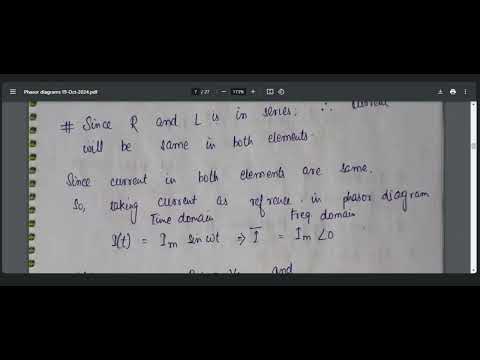 Phasor diagrams 19-Oct-2024.pdf
7 / 27
177%
# Since R and L is in series, ∴ current
will be same in both elements.
Since current in both elements are same.
So, taking current as refrence in phasor diagram
Time domain Freq. domain
I(t) = Im sin wt ⇒ I̅ = Im ∠0
and